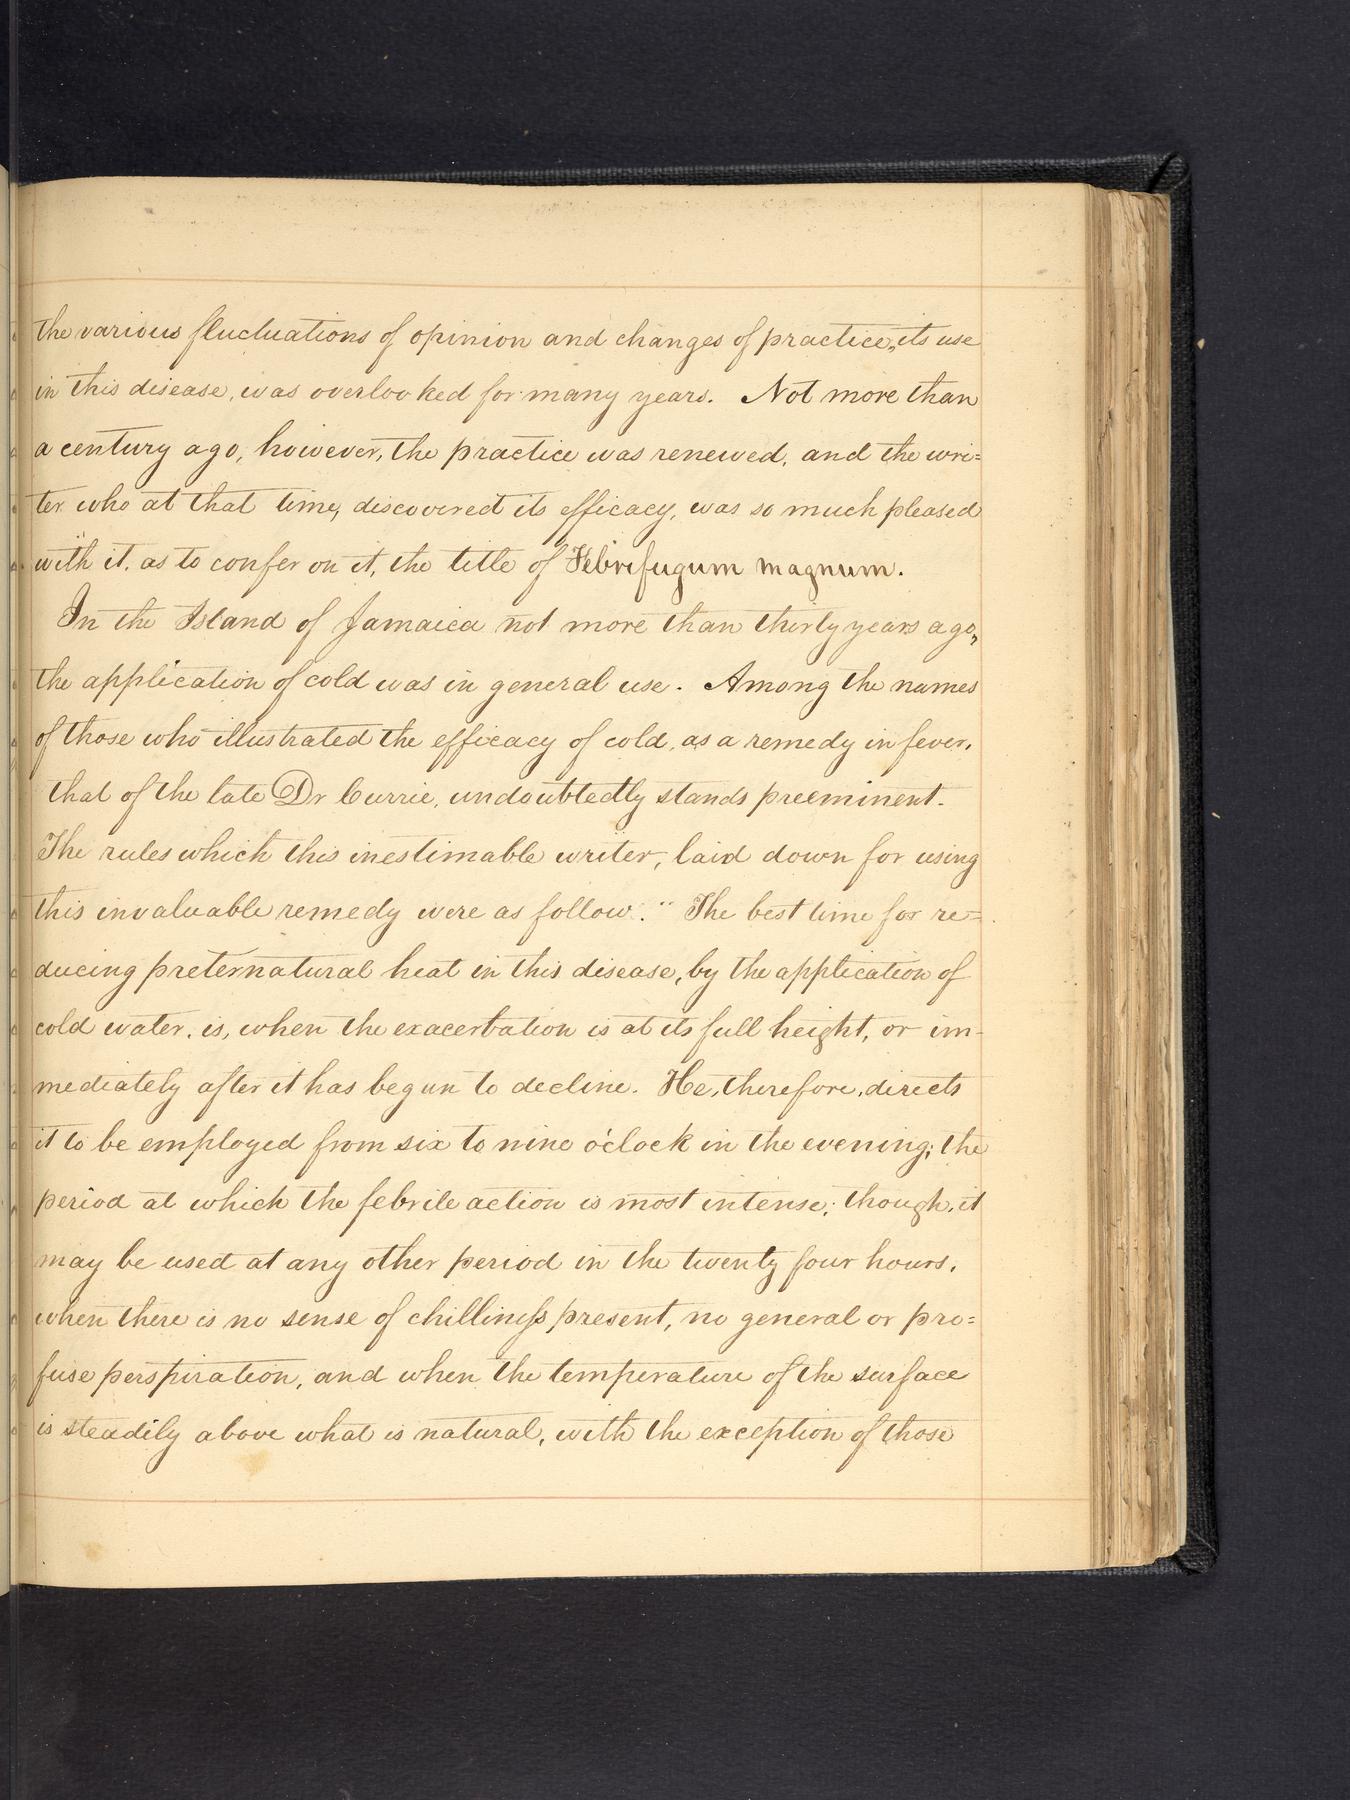 the various fluctuations of opinion and changes of practice, its use
in this disease, was overlooked for many years. Not more than
a century ago, however, the practice was renewed, and the wri=
ter who at that time, discovered its efficacy, was so much pleased
with it, as to confer on it, the title of Febrifugum magnum.
In the Island of Jamaica not more than thirty years ago,
the application of cold was in general use. Among the names
of those who illustrated the efficacy of cold, as a remedy in fever,
that of the late Dr Currie, undoubtedly stands preeminent.
The rules which this inestimable writer, laid down for using
this invaluable remedy were as follow." The best time for re=
ducing preternatural heat in this disease, by the application of
cold water, is, when the exacerbation is at its full height, or im-
mediately after it has begun to decline. He, therefore, directs
it to be employed from six to nine o'clock in the evening; the
period at which the febrile action is most intense; though, it
may be used at any other period in the twenty four hours,
when there is no sense of chilliness present, no general or pro=
fuse perspiration, and when the temperature of the surface
is steadily above what is natural, with the exception of those